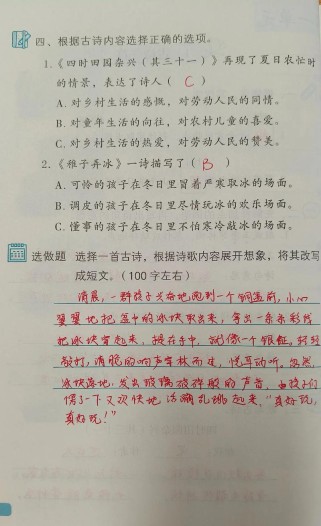 四、根据古诗内容选择正确的选项。
1.《四时田园杂兴（其三十一）》再现了夏日农忙时
的情景，表达了诗人（ C ）
A. 对乡村生活的感慨，对劳动人民的同情。
B. 对童年生活的向往，对农村儿童的喜爱。
C. 对乡村生活的热爱，对劳动人民的赞美。
2.《稚子弄冰》一诗描写了（ B ）
A. 可怜的孩子在冬日里冒着严寒取冰的场面。
B. 调皮的孩子在冬日里尽情玩冰的欢乐场面。
C. 懂事的孩子在冬日里不怕寒冷敲冰的场面。
选做题 选择一首古诗，根据诗歌内容展开想象，将其改写
成短文。（100字左右）
清晨，一群孩子兴奋地跑到一个铜盆前，小心
翼翼地把盆中的冰块取出来，拿出一条条彩线
把冰块穿起来，提在手中，就像一个银钲，轻轻
敲打，清脆的响声穿林而过，悦耳动听。忽然，
冰块落地，发出玻璃被碎般的声音，孩子们
愣了一下又欢快地活蹦乱跳起来，“真好玩，
真好玩！”